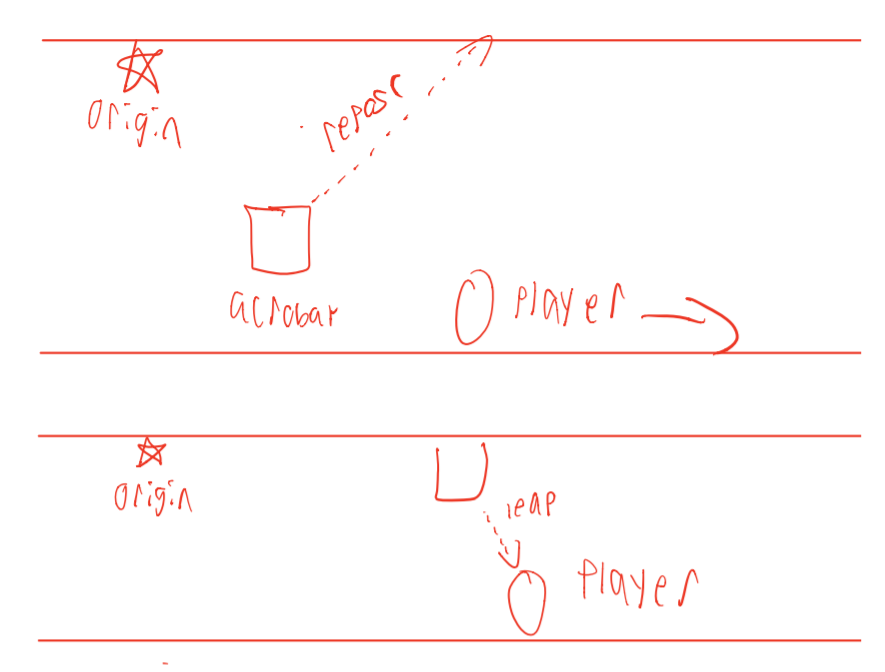 origin
repose
acrobat
player
origin
leap
player